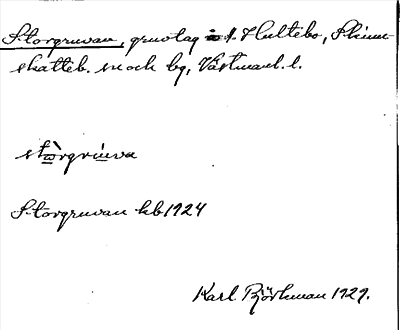 Storgruvan, gruvlag i f. Hultebo, Skinn-
skatteb. sn och bg, Västmanl. l.
stòrgrúva
Storgruvan kb 1924
Karl Björkman 1929.